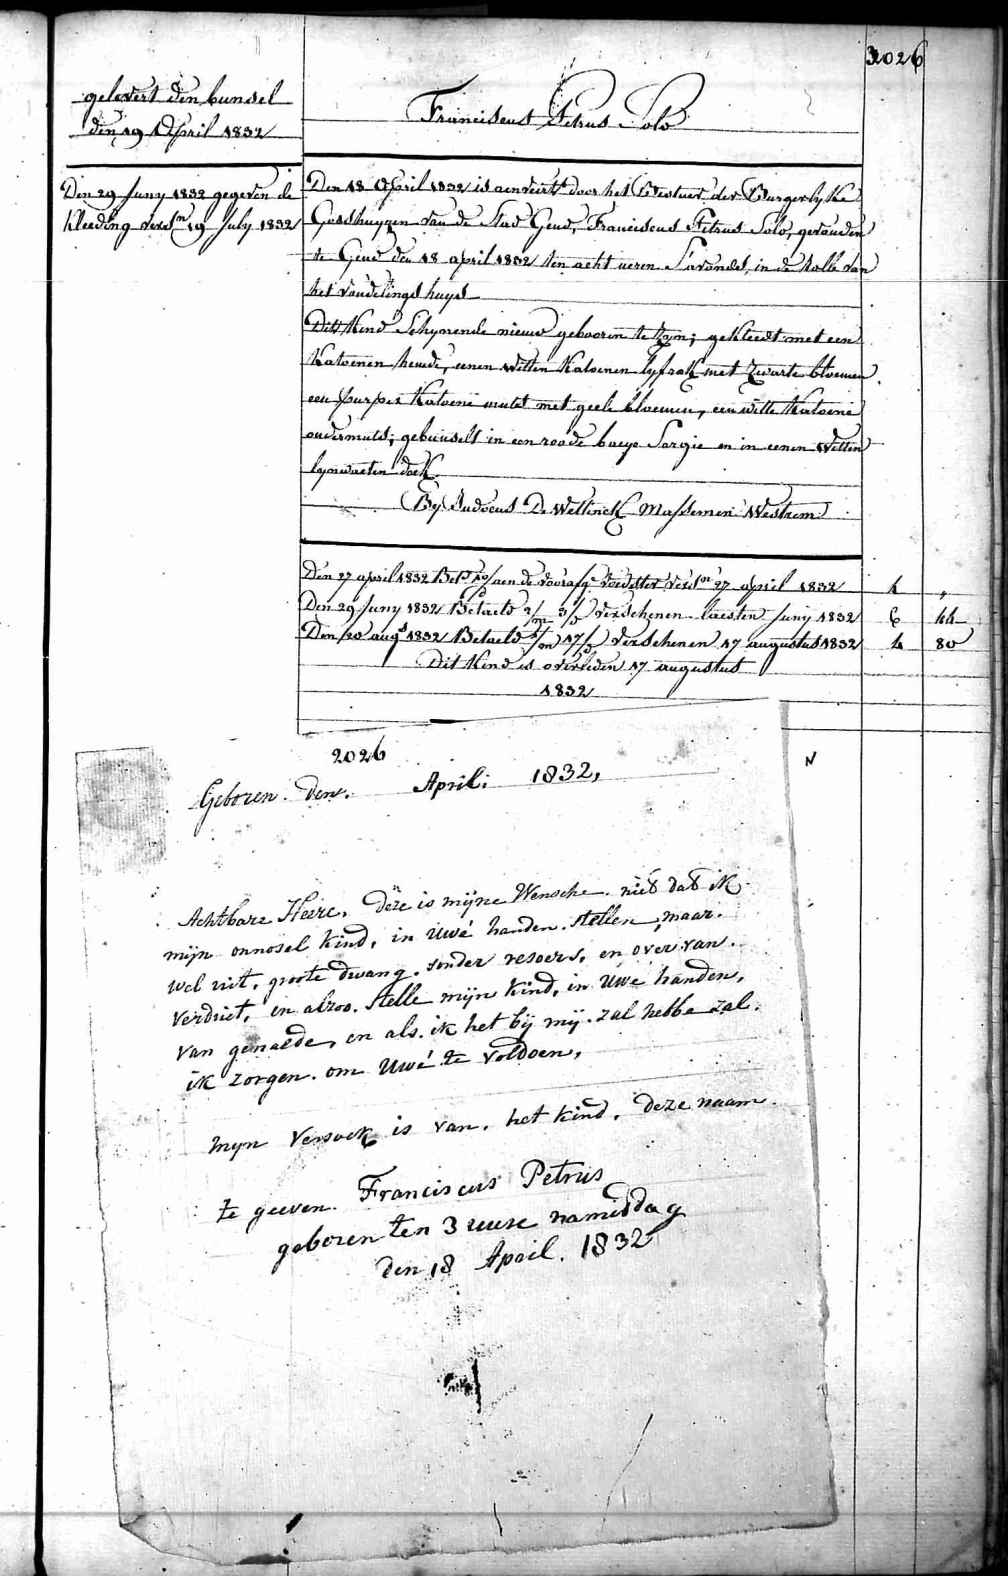 2026
gelevert den bunsel
den 19 April 1832
Franciscus Petrus Solo
Den 29 Juny 1832 gegeven de
kleeding versn 19 July 1832
Den 18 April 1832 is aenveirt door het Bestuur der Burgerlyke
Godshuyzen van de Stad Gend, Franciscus Petrus Solo, gevonden
te Gend den 18 april 1832 ten acht ueren S'avonds, in de Rolle van
het vondelingshuys
Dit Kind Schynende nieuw gebooren te zyn; gekleedt met een
Katoenen hemde, eenen witten Katoenen lyfrok met zwarte bloemen
een purper Katoene muts met geele bloemen, een witte Katoene
ondermuts; gebunselt in een roode baeye Sargie en in eenen witten
lynwaeten doek
By Judocus De Wettinck Massemen Westrem
Den 27 april 1832 Bet. aen de voedster versn 27 april 1832 4 "
Den 29 Juny 1832 Betaelt 2/m 3/d verschenen laesten Juny 1832 6 44
Den 20 augs 1832 Betaelt 1/m 17/d verschenen 17 augustus 1832 4 80
Dit Kind is overleden 17 augustus
1832
2026
Geboren den. April: 1832,
Achtbare Heere, deze is mijne Wensche. niet dat ik
mijn onnosel kind, in Uwé handen. stellen, maar.
wel uit, groote dwang. sonder resoers, en over van.
verdriet, en alzoo. stelle mijn kind, in Uwe handen,
van genaede, en als. ik het bij mij. zal hebbe zal.
ik zorgen. om Uwé te voldoen,
mijn Versoek is van. het kind. deze naam.
te geeven. Franciscus Petrus
geboren ten 3 uure namiddag
den 18 April. 1832